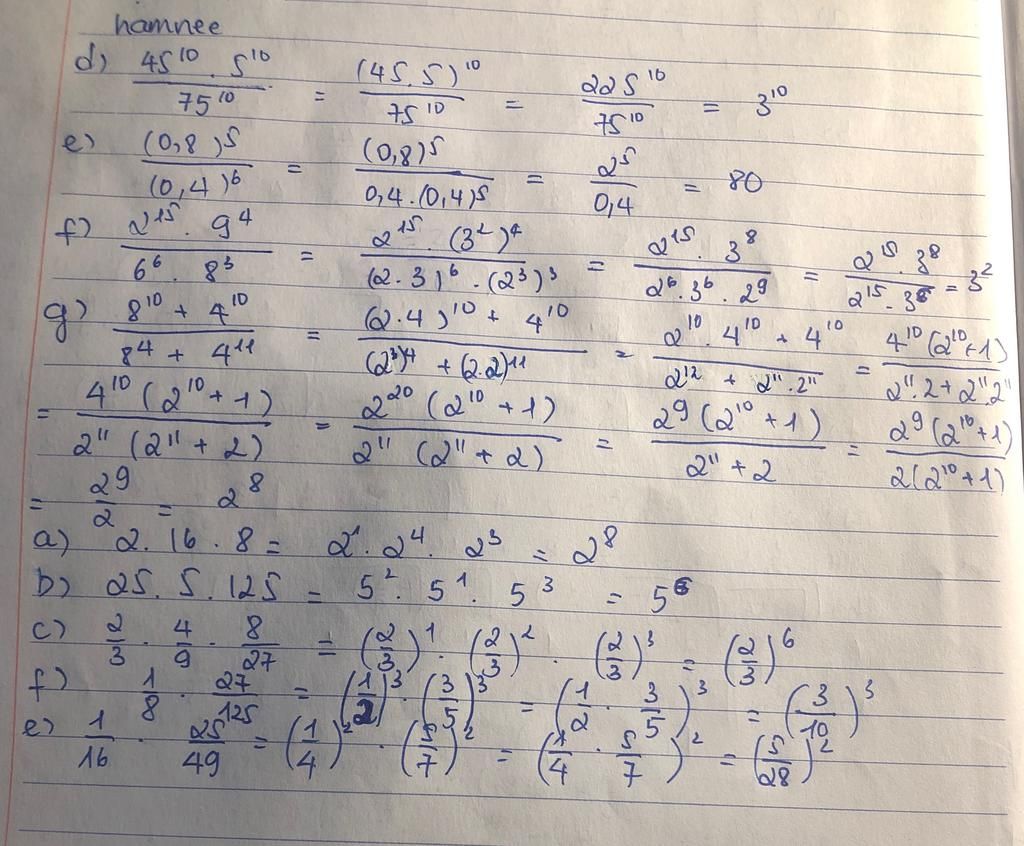 hamnee
d) 45¹⁰ . 5¹⁰ / 75¹⁰ = (45.5)¹⁰ / 75¹⁰ = 225¹⁰ / 75¹⁰ = 3¹⁰
e) (0,8)⁵ / (0,4)⁶ = (0,8)⁵ / 0,4.(0,4)⁵ = 2⁵ / 0,4 = 80
f) 2¹⁵ . 9⁴ / 6⁶ . 8³ = 2¹⁵ . (3²)⁴ / (2.3)⁶ . (2³)³ = 2¹⁵ . 3⁸ / 2⁶ . 3⁶ . 2⁹ = 2¹⁵ . 3⁸ / 2¹⁵ . 3⁶ = 3²
g) 8¹⁰ + 4¹⁰ / 8⁴ + 4¹¹ = (2.4)¹⁰ + 4¹⁰ / (2³)⁴ + (2.2)¹¹ = 2¹⁰ . 4¹⁰ + 4¹⁰ / 2¹² + 2¹¹ . 2¹¹ = 4¹⁰ (2¹⁰+1) / 2¹¹ . 2 + 2¹¹ . 2¹¹
= 4¹⁰ (2¹⁰ + 1) / 2¹¹ (2¹¹ + 2) = 2²⁰ (2¹⁰ + 1) / 2¹¹ (2¹¹ + 2) = 2⁹ (2¹⁰ + 1) / 2¹¹ + 2 = 2⁹ (2¹⁰+1) / 2(2¹⁰+1)
= 2⁹ / 2 = 2⁸
a) 2 . 16 . 8 = 2¹ . 2⁴ . 2³ = 2⁸
b) 25 . 5 . 125 = 5² . 5¹ . 5³ = 5⁶
c) 2/3 . 4/9 . 8/27 = (2/3)¹ . (2/3)² . (2/3)³ = (2/3)⁶
f) 1/8 . 27/125 = (1/2)³ . (3/5)³ = (1/2 . 3/5)³ = (3/10)³
e) 1/16 . 25/49 = (1/4)² . (5/7)² = (1/4 . 5/7)² = (5/28)²